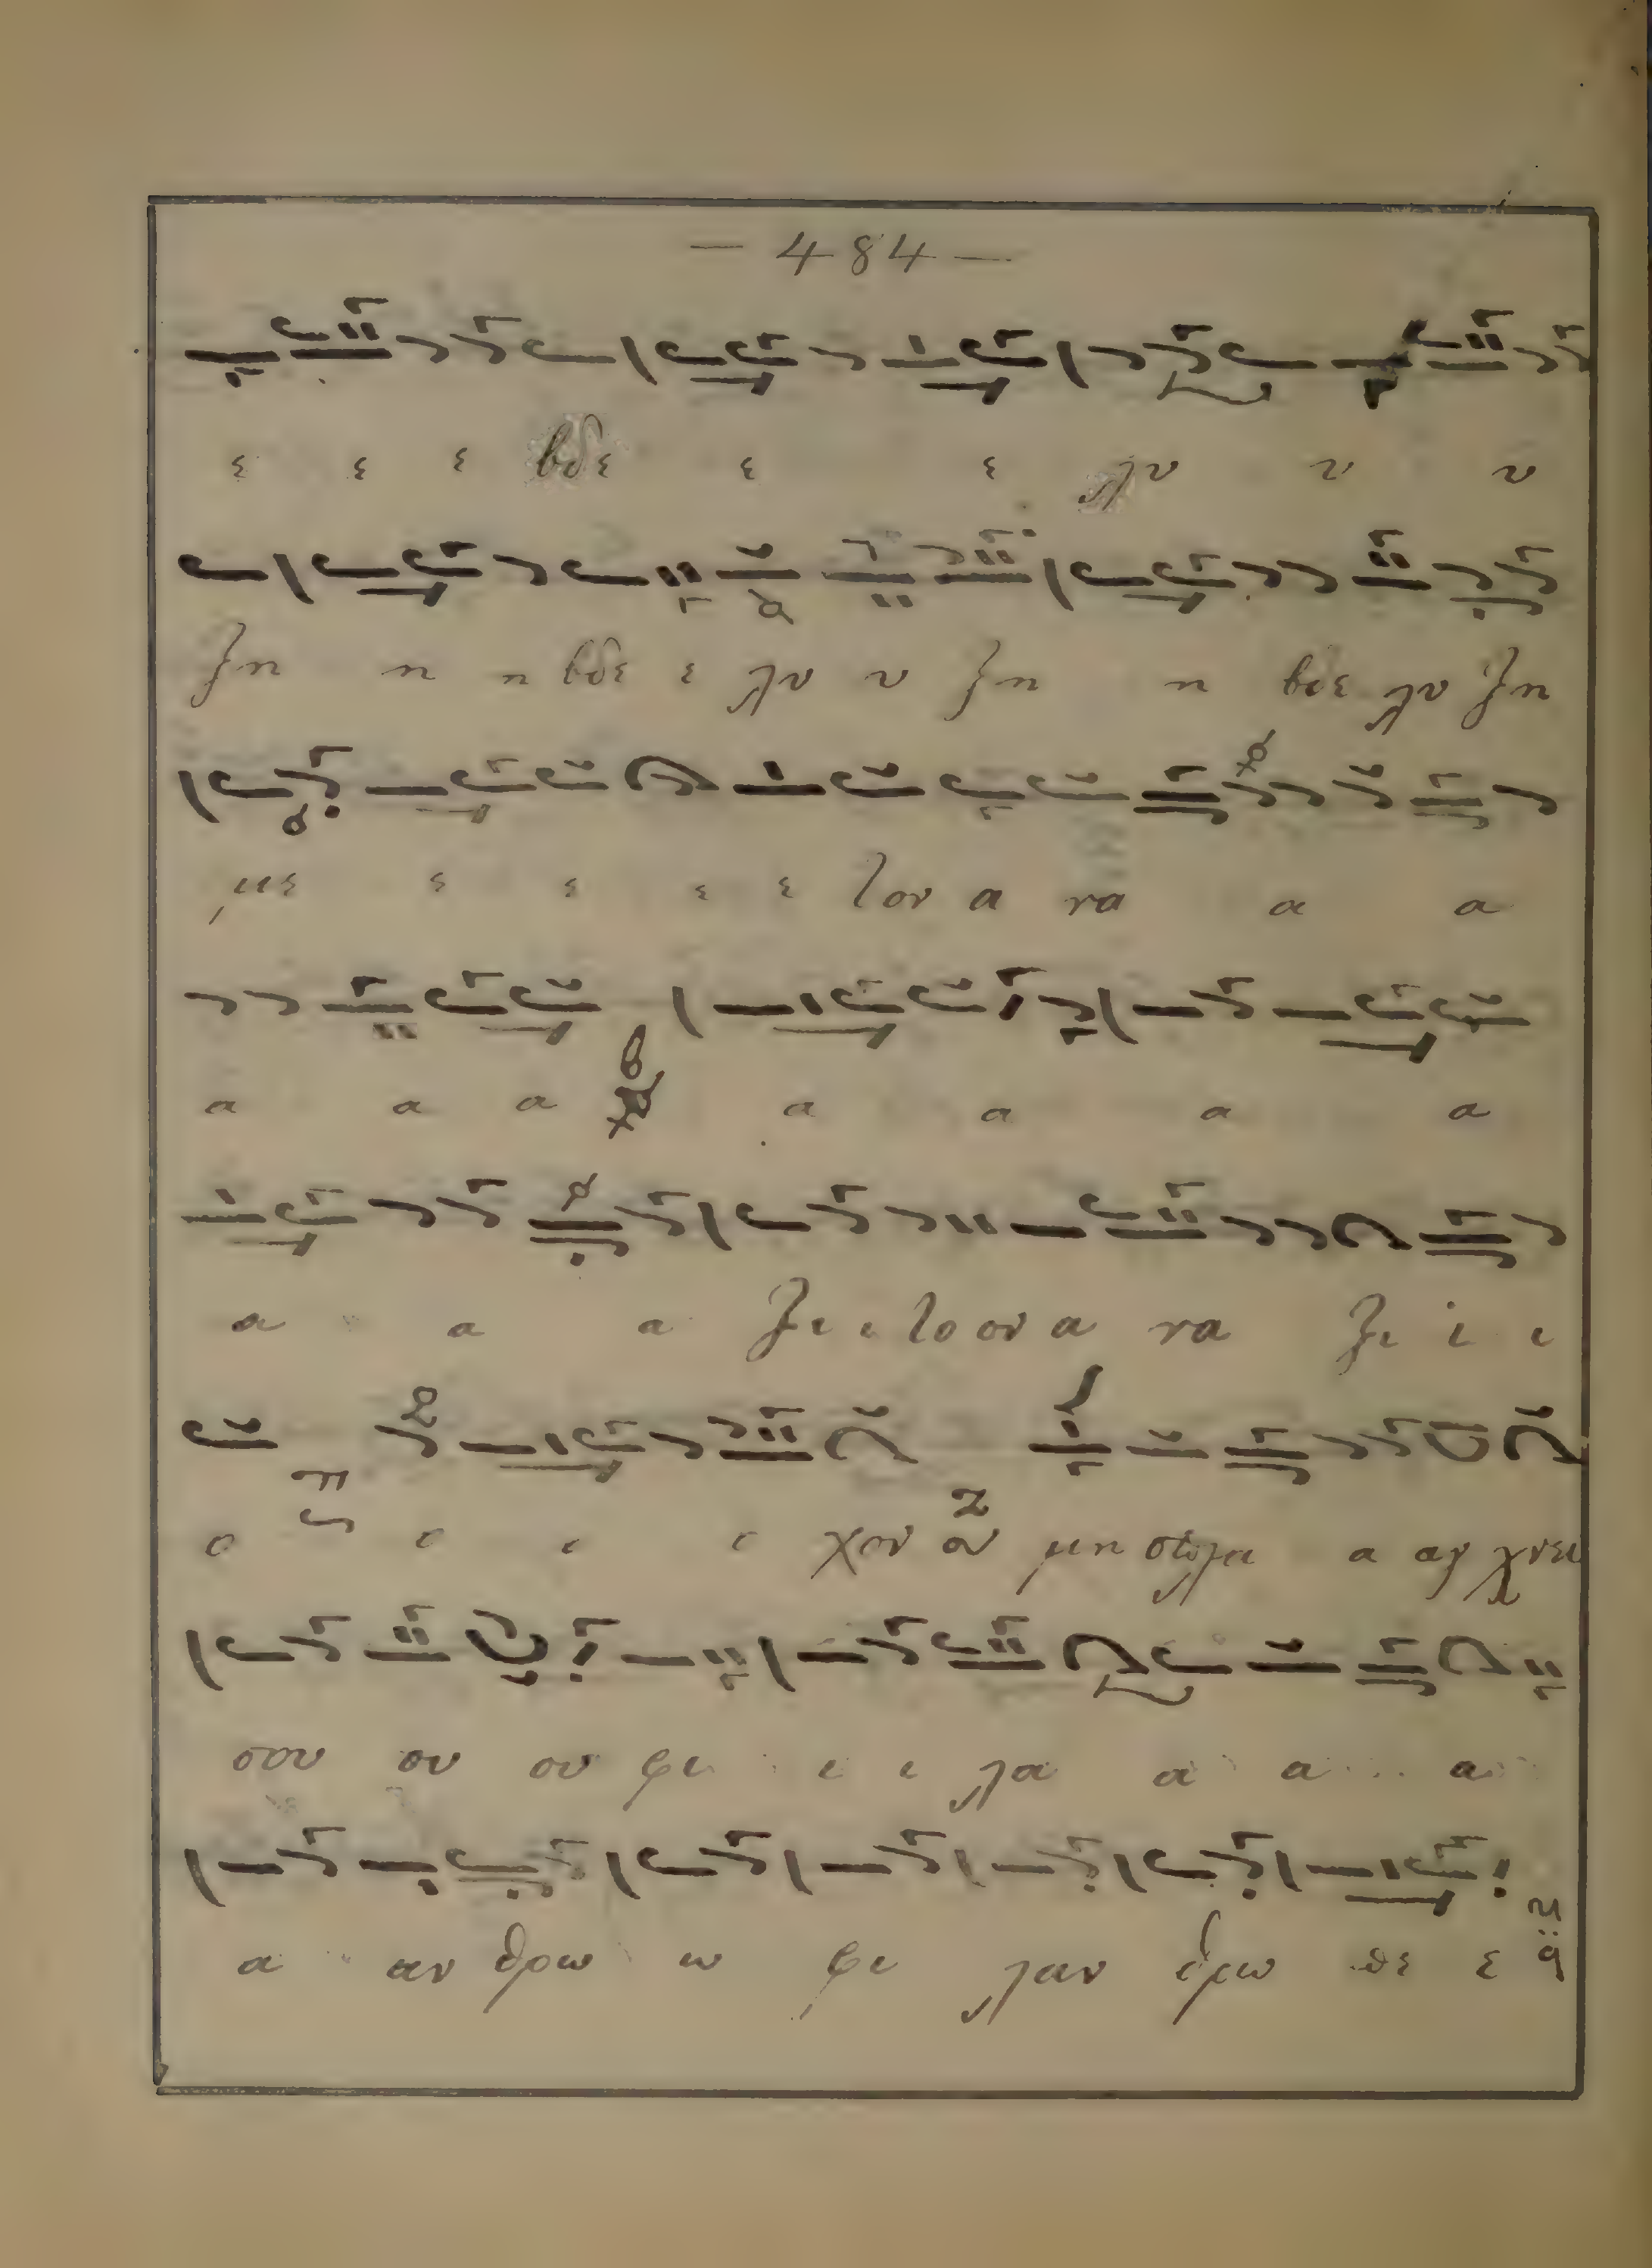 — 484 —
ε ε ε βδε ε ε λυ υ υ
ξη η η βδε ε λυ υ ξη η βδε λυ ξη
με ε ε ε ε τον α να α α
α α α α α α α
α α α ξι ι το ον α να ξι ι ι
ο ο ι ι χον ον μη στυλα α αγ χνει
σου ου ου φι ι ι λα α α α
α αν θρω ω φι λαν θρω πε ε